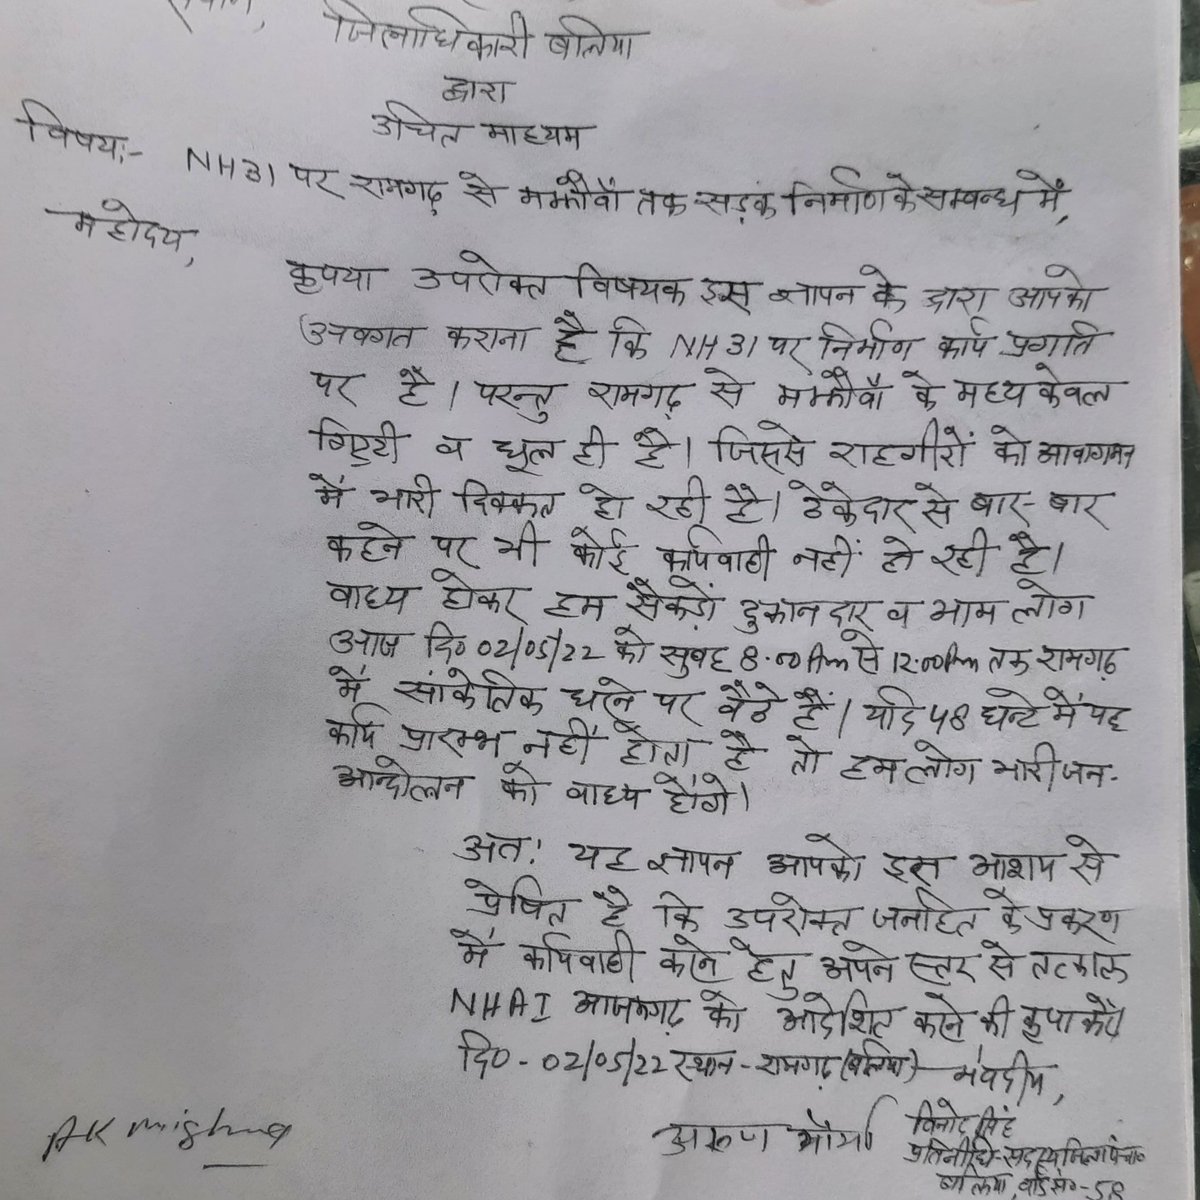 जिलाधिकारी बलिया
द्वारा
उचित माध्यम
विषय:- NH31 पर रामगढ़ से मझौवाँ तक सड़क निर्माण के सम्बन्ध में,
महोदय,
कृपया उपरोक्त विषयक इस ज्ञापन के द्वारा आपको
अवगत कराना है कि NH31 पर निर्माण कार्य प्रगति
पर है। परन्तु रामगढ़ से मझौवाँ के मध्य केवल
गिट्टी व धूल ही है। जिससे राहगीरों को आवागमन
में भारी दिक्कत हो रही है। ठेकेदार से बार-बार
कहने पर भी कोई कार्यवाही नहीं हो रही है।
वाध्य होकर हम सैकड़ों दुकानदार व आम लोग
आज दि० 02/05/22 को सुबह 8.00Am से 12.00Am तक रामगढ़
में सांकेतिक धरने पर बैठे हैं। यदि 48 घन्टे में यह
कार्य प्रारम्भ नहीं होता है तो हमलोग भारी जन-
आन्दोलन को वाध्य होंगे।
अत: यह ज्ञापन आपको इस आशय से
प्रेषित है कि उपरोक्त जनहित के प्रकरण
में कार्यवाही करने हेतु अपने स्तर से तत्काल
NHAI आजमगढ़ को आदेशित करने की कृपा करें।
दि० - 02/05/22 स्थान - रामगढ़ (बलिया) भवदीय,
AK mishra
अरुण मौर्या
विनोद सिंह
प्रतिनिधि-सदस्य जिला पंचा०
बलिया वार्ड सं०-58